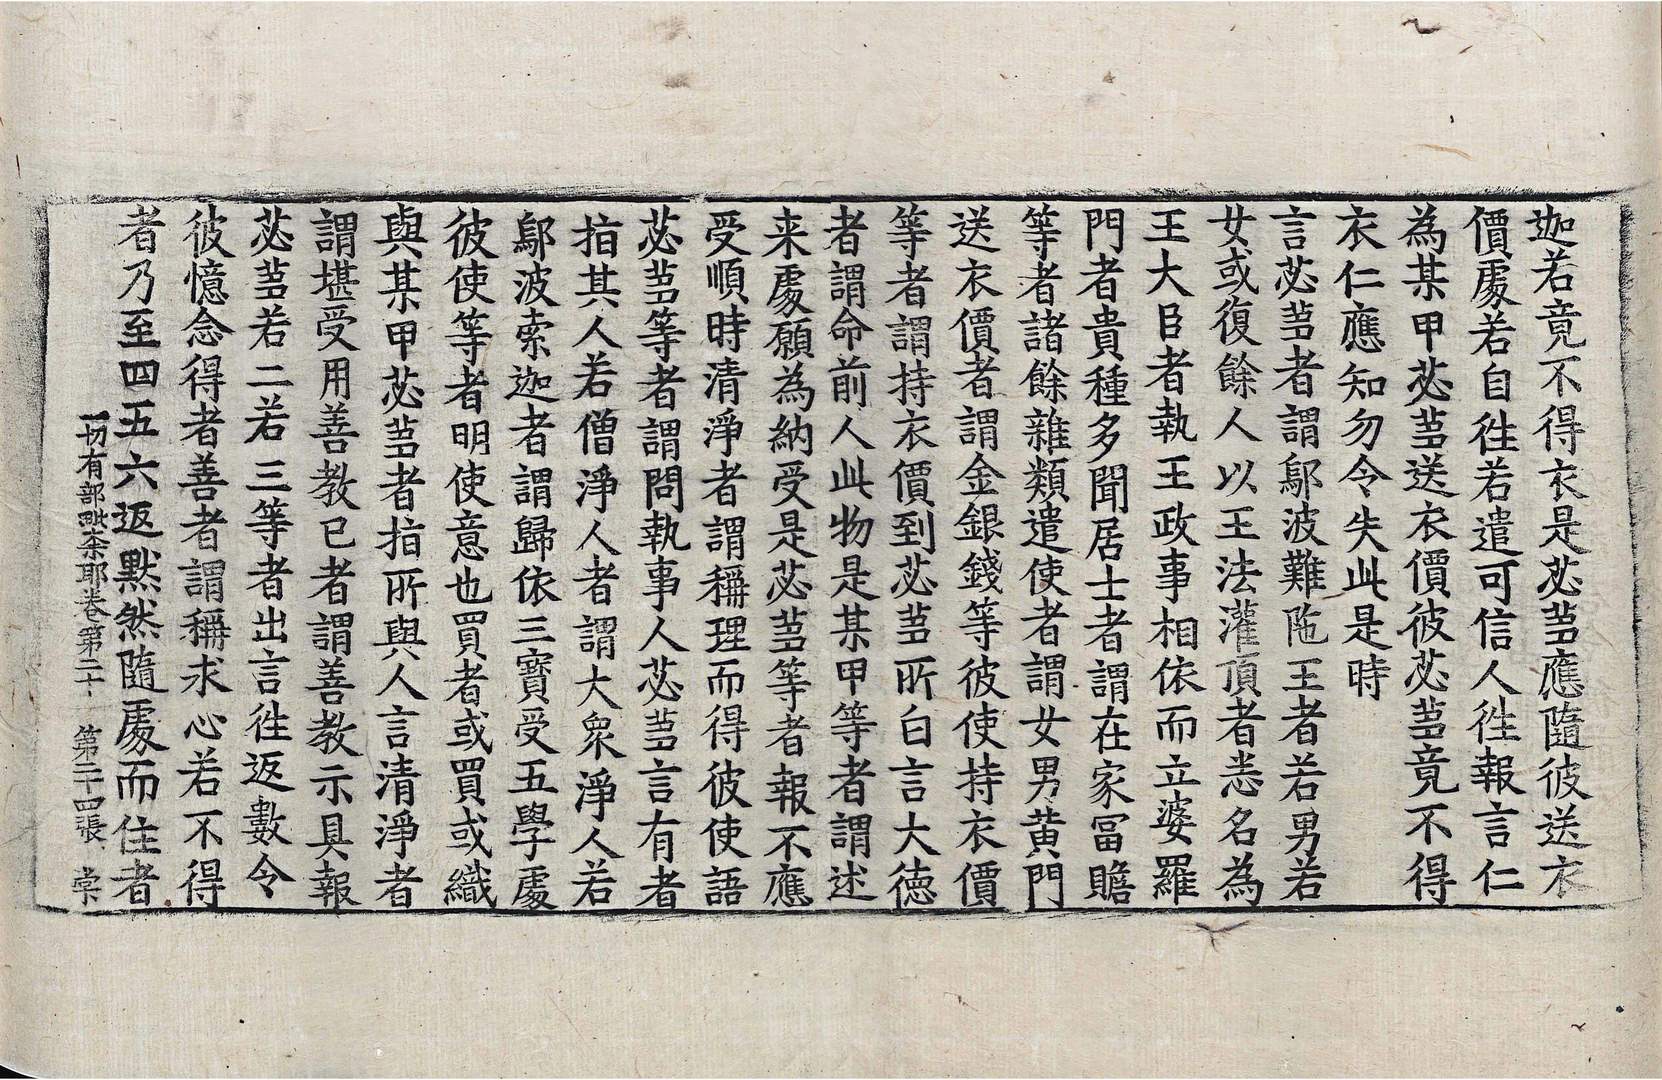 迦若竟不得衣是苾芻應隨彼送衣
價處若自往若遣可信人往報言仁
為某甲苾芻送衣價彼苾芻竟不得
衣仁應知勿令失此是時
言苾芻者謂鄔波難陁王者若男若
女或復餘人以王法灌頂者悉名為
王大臣者執王政事相依而立婆羅
門者貴種多聞居士者謂在家冨贍
等者諸餘雜類遣使者謂女男黃門
送衣價者謂金銀錢等彼使持衣價
等者謂持衣價到苾芻所白言大德
者謂命前人此物是某甲等者謂述
来處願為納受是苾芻等者報不應
受順時清淨者謂稱理而得彼使語
苾芻等者謂問執事人苾芻言有者
指其人若僧淨人者謂大衆淨人若
鄔波索迦者謂歸依三寶受五學處
彼使等者明使意也買者或買或織
與某甲苾芻者指所與人言清淨者
謂堪受用善教已者謂善教示具報
苾芻若二若三等者出言往返數令
彼憶念得者善者謂稱求心若不得
者乃至四五六返默然隨處而住者
一切有部毗奈耶卷第二十　第二十四張　棠